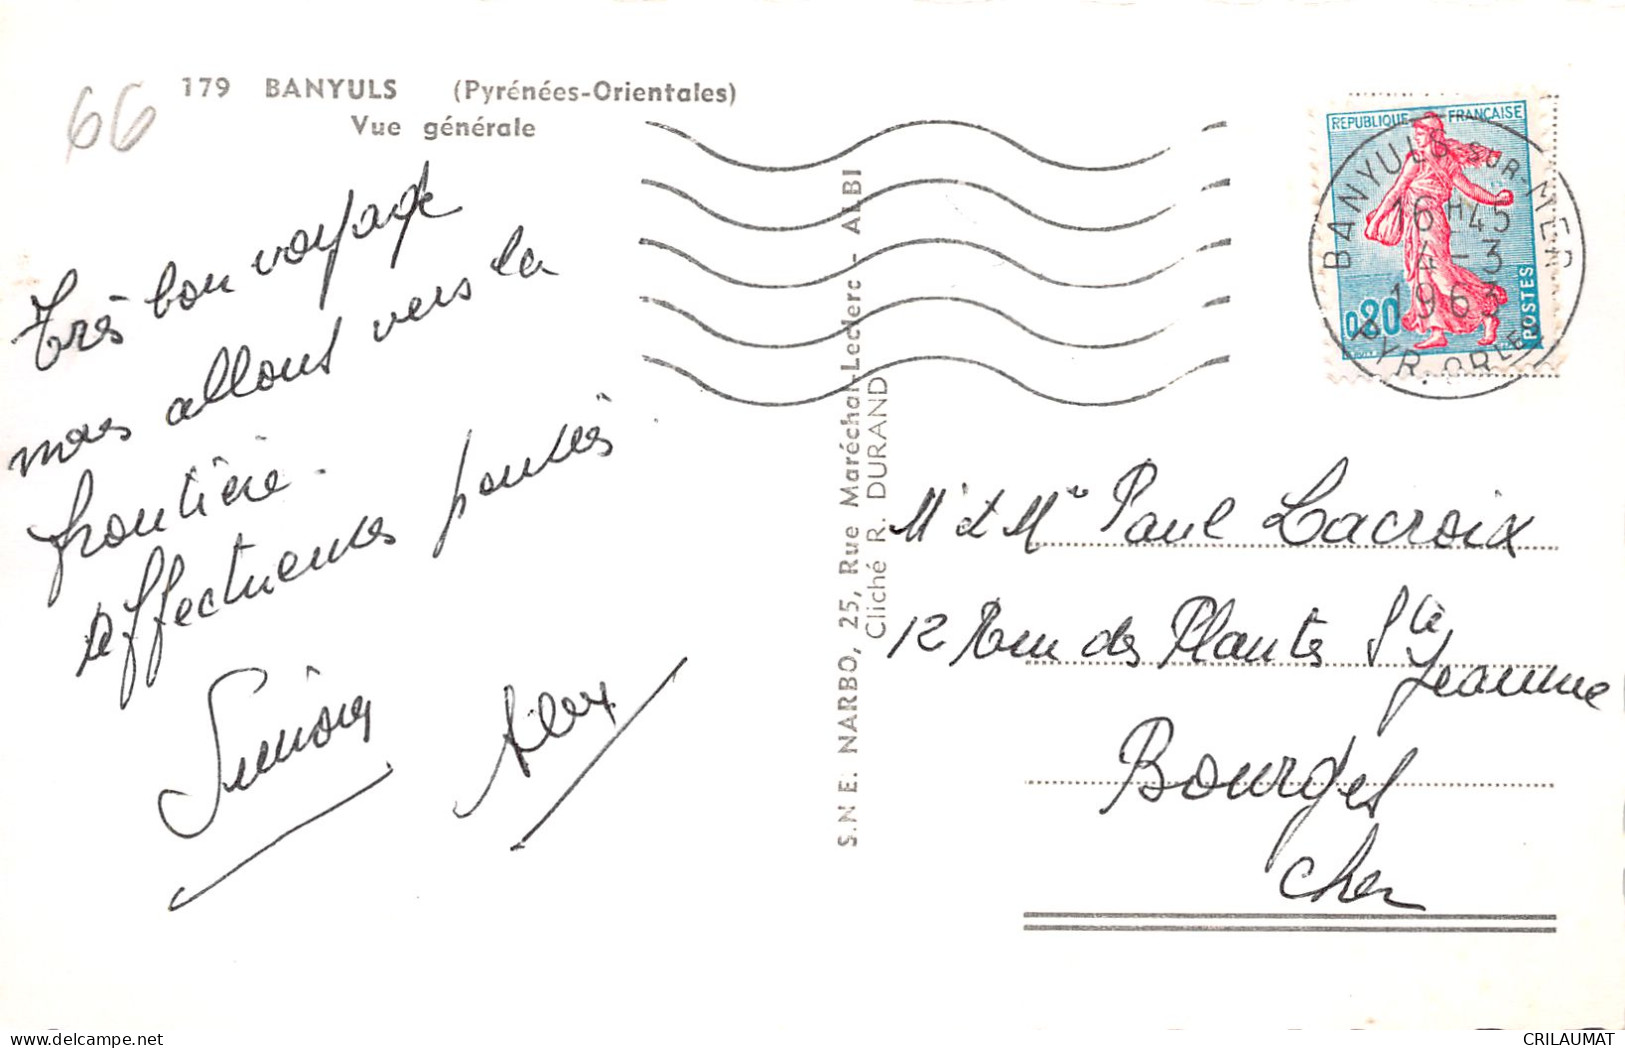 66
179 BANYULS (Pyrénées-Orientales)
Vue générale
Très bon voyage
nous allons vers la
frontière.
Affectueuses pensées
Simone Alex
S.N.E. NARBO, 25, Rue Maréchal-Leclerc - ALBI
Cliché R. DURAND
REPUBLIQUE FRANÇAISE
0,20
POSTES
BANYULS-SUR-MER
16H45
4-3
1963
PYR. ORLES
Mr et Me Paul Lacroix
12 Rue des Plantes Ste
Jeanne
Bourges
Cher
CRILAUMAT